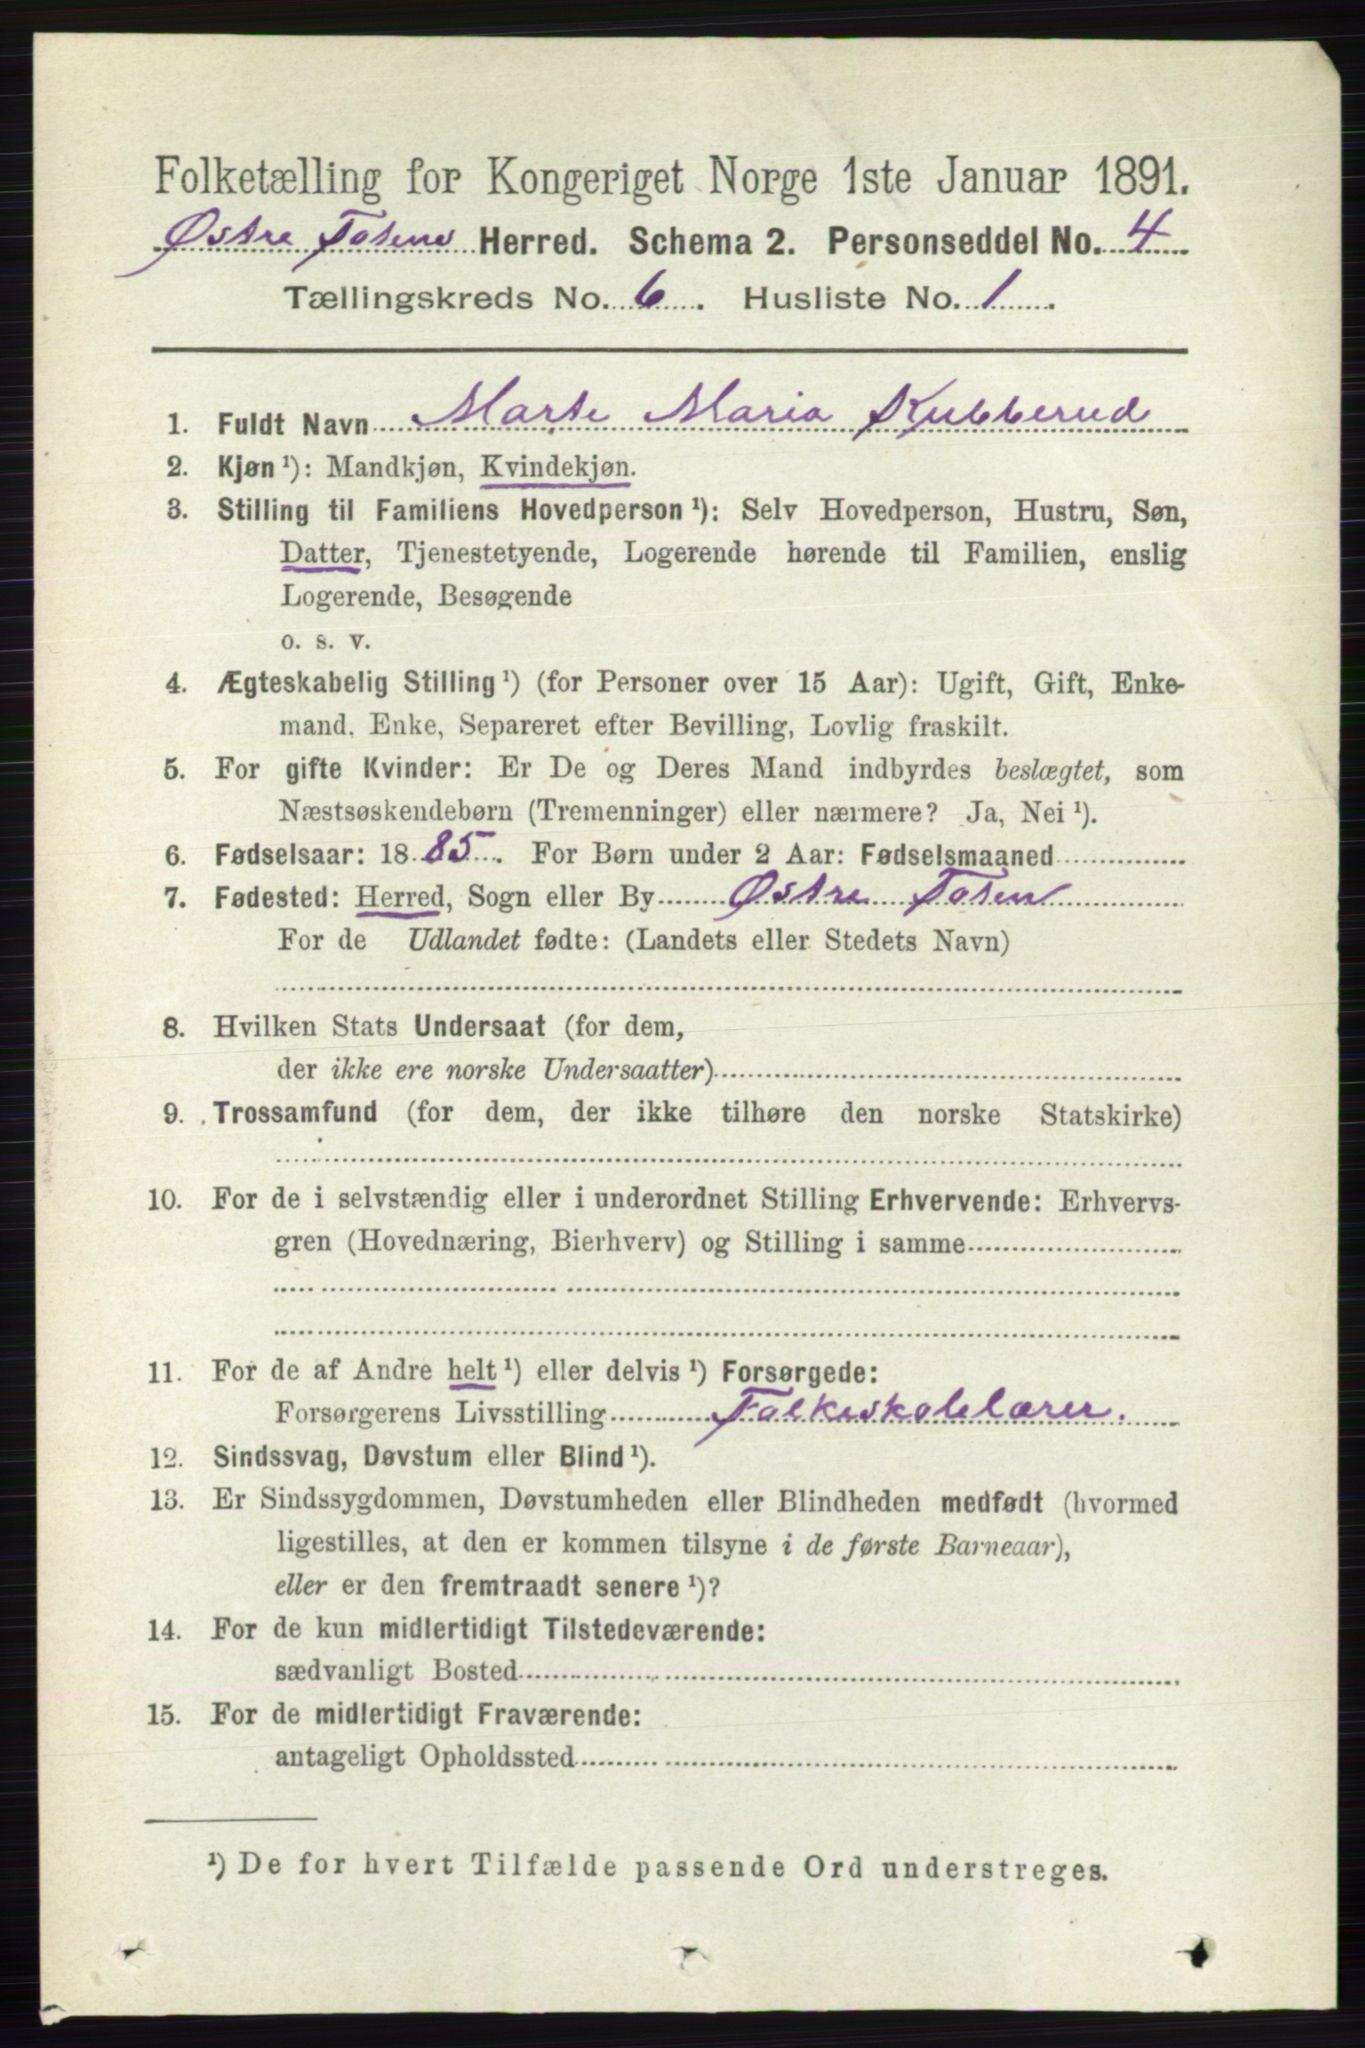 Folketælling for Kongeriget Norge 1ste Januar 1891.
Østre Totens Herred. Schema 2. Personseddel No. 4
Tællingskreds No. 6. Husliste No. 1.
1. Fuldt Navn Marte Maria Kubberud
2. Kjøn ¹): Mandkjøn, Kvindekjøn.
3. Stilling til Familiens Hovedperson ¹): Selv Hovedperson, Hustru, Søn,
Datter, Tjenestetyende, Logerende hørende til Familien, enslig
Logerende, Besøgende
o. s. v.
4. Ægteskabelig Stilling ¹) (for Personer over 15 Aar): Ugift, Gift, Enke-
mand, Enke, Separeret efter Bevilling, Lovlig fraskilt.
5. For gifte Kvinder: Er De og Deres Mand indbyrdes beslægtet, som
Næstsøskendebørn (Tremenninger) eller nærmere? Ja, Nei ¹).
6. Fødselsaar: 1885. For Børn under 2 Aar: Fødselsmaaned
7. Fødested: Herred, Sogn eller By Østre Toten
For de Udlandet fødte: (Landets eller Stedets Navn)
8. Hvilken Stats Undersaat (for dem,
der ikke ere norske Undersaatter)
9. Trossamfund (for dem, der ikke tilhøre den norske Statskirke)
10. For de i selvstændig eller i underordnet Stilling Erhvervende: Erhvervs-
gren (Hovednæring, Bierhverv) og Stilling i samme
11. For de af Andre helt ¹) eller delvis ¹) Forsørgede:
Forsørgerens Livsstilling Folkeskolelærer.
12. Sindssvag, Døvstum eller Blind ¹).
13. Er Sindssygdommen, Døvstumheden eller Blindheden medfødt (hvormed
ligestilles, at den er kommen tilsyne i de første Barneaar),
eller er den fremtraadt senere ¹)?
14. For de kun midlertidigt Tilstedeværende:
sædvanligt Bosted
15. For de midlertidigt Fraværende:
antageligt Opholdssted
¹) De for hvert Tilfælde passende Ord understreges.